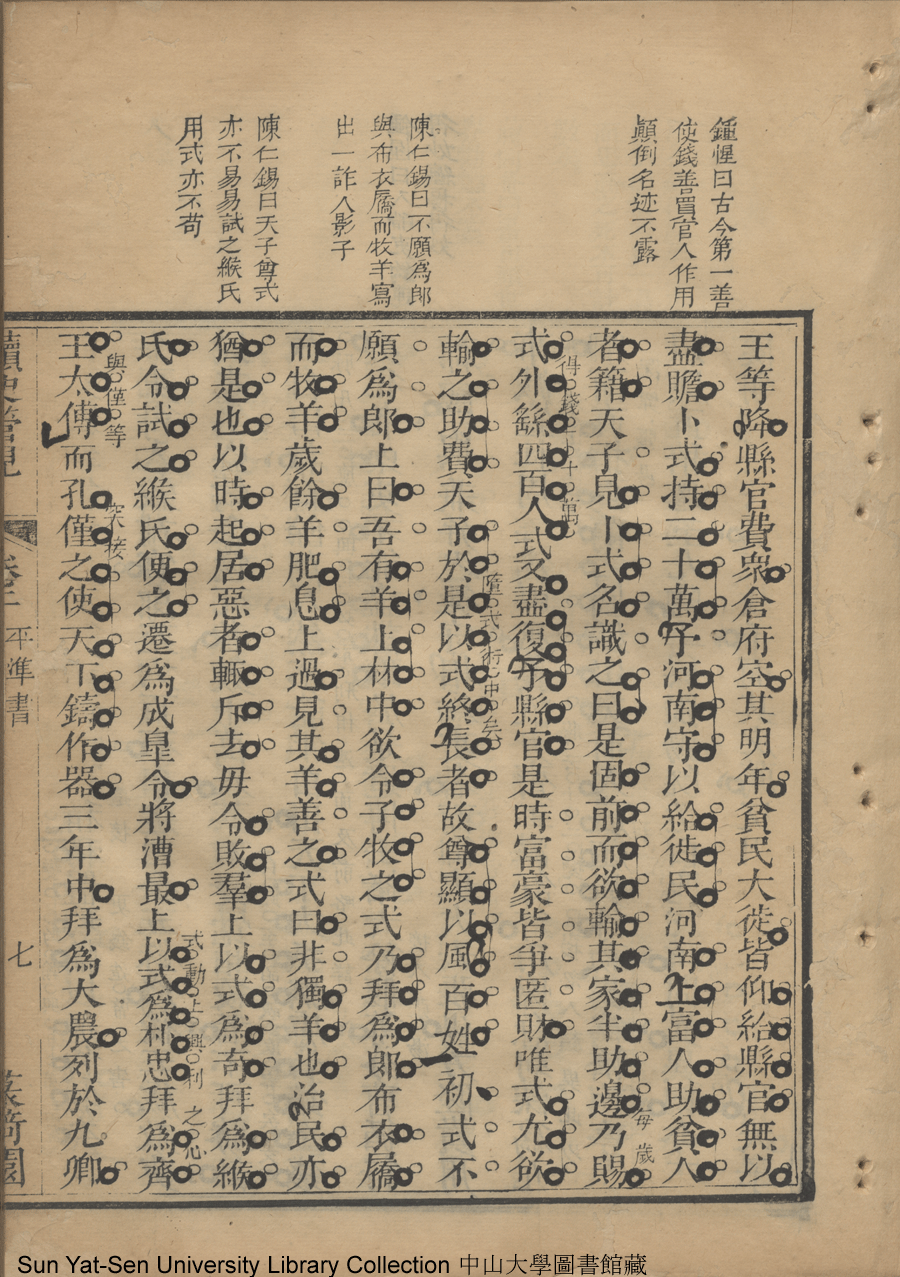 鍾惺曰古今第一善
使錢善買官人作用
顛倒名迹不露
陳仁錫曰不願爲郎
與布衣屩而牧羊寫
出一詐人影子
陳仁錫曰天子尊式
亦不易易試之緱氏
用式亦不苟
王等降縣官費衆倉府空其明年貧民大徙皆仰給縣官無以
盡贍卜式持二十萬予河南守以給徙民河南上富人助貧人
者籍天子見卜式名識之曰是固前而欲輸其家半助邊乃賜
每歲
式外繇四百人式又盡復予縣官是時富豪皆爭匿財唯式尤欲
得錢十二萬
輸之助費天子於是以式終長者故尊顯以風百姓初式不
墮式術中矣
願爲郎上曰吾有羊上林中欲令子牧之式乃拜爲郎布衣屩
而牧羊歲餘羊肥息上過見其羊善之式曰非獨羊也治民亦
猶是也以時起居惡者輒斥去毋令敗羣上以式爲奇拜爲緱
氏令試之緱氏便之遷爲成臯令將漕最上以式爲朴忠拜爲齊
式動上興利之心
王太傅而孔僅之使天下鑄作器三年中拜爲大農列於九卿
與僅等
突接
讀史管見
卷二
平準書
七